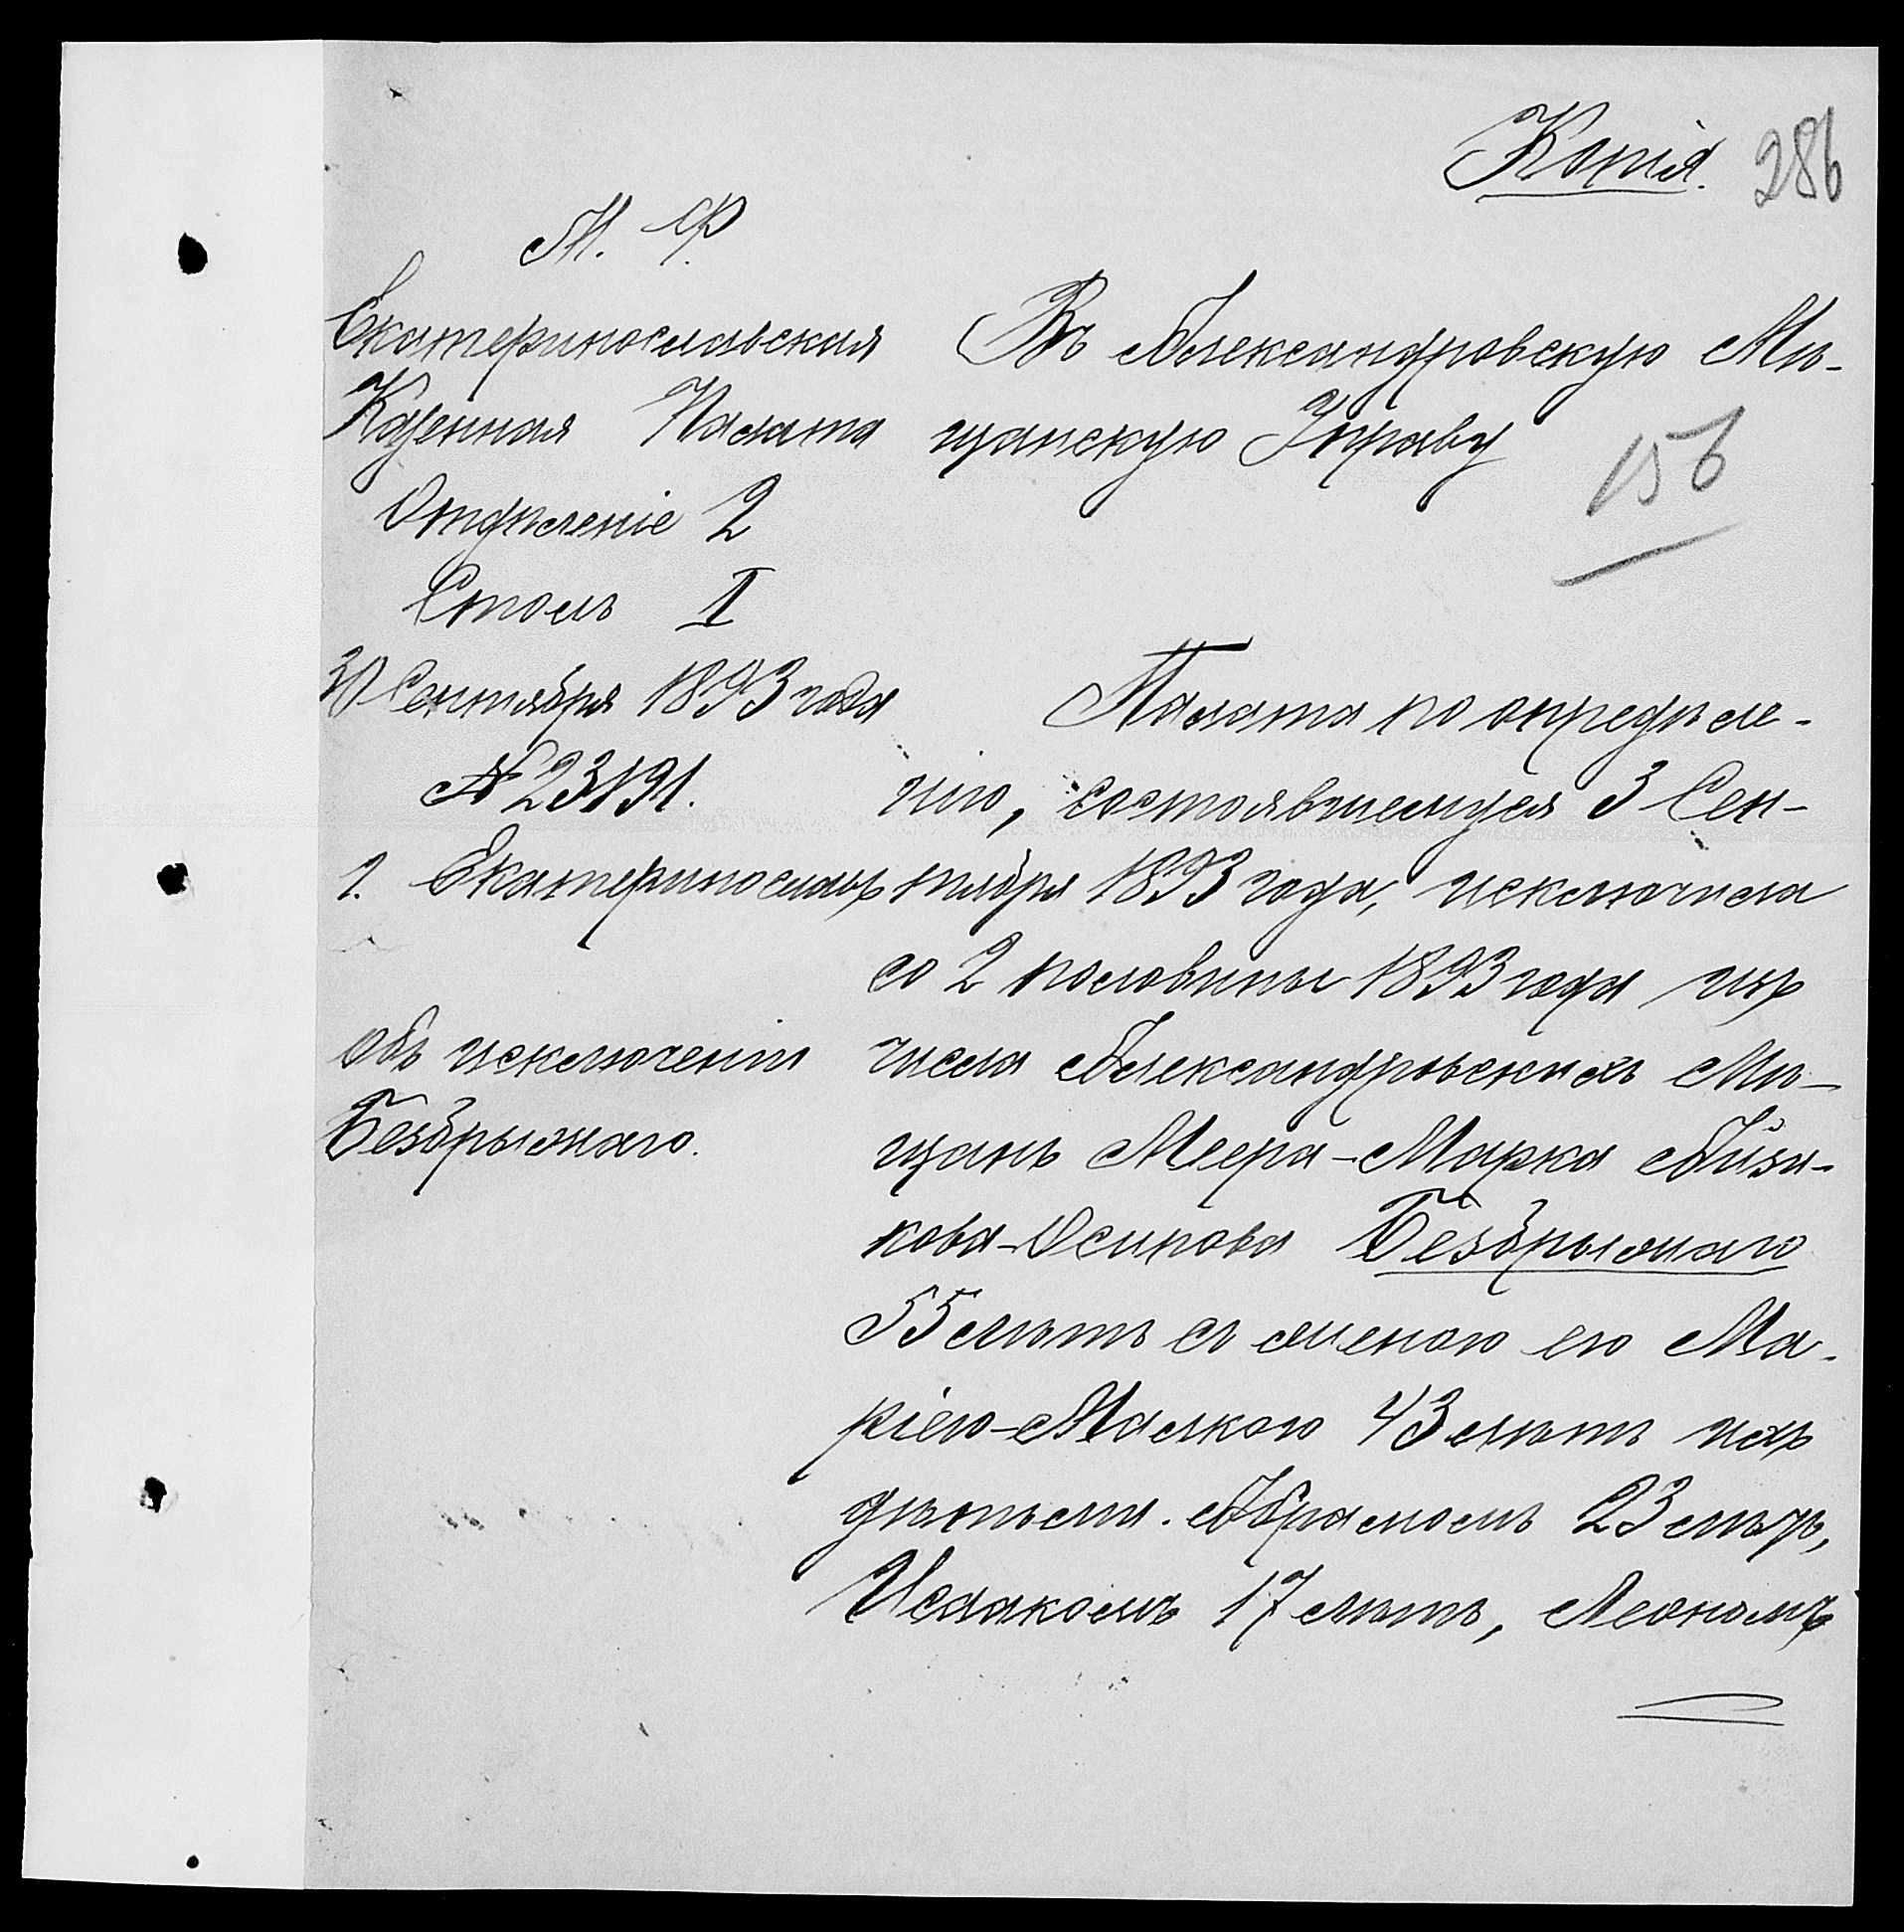 Копія.
286
М. Ф.
Екатеринославская
Казенная Палата
Отдѣленіе 2
Столъ I
30 Сентября 1893 года
№ 23191.
г. Екатеринославъ
Объ исключеніи
Безбрыжаго.
Въ Александровскую Мѣ-
щанскую Управу
156
Палата по опредѣле-
нію, состоявшемуся 3 Сен-
тября 1893 года, исключила
со 2 половины 1893 года изъ
числа Александровскихъ Мѣ-
щанъ Меера-Марка Айзи-
кова-Осипова Безбрыжаго
55 лѣтъ съ женою его Ма-
ріею-Малкою 43 лѣтъ и ихъ
дѣтьми. Абрамомъ 23 лѣтъ,
Исаакомъ 17 лѣтъ, Леономъ